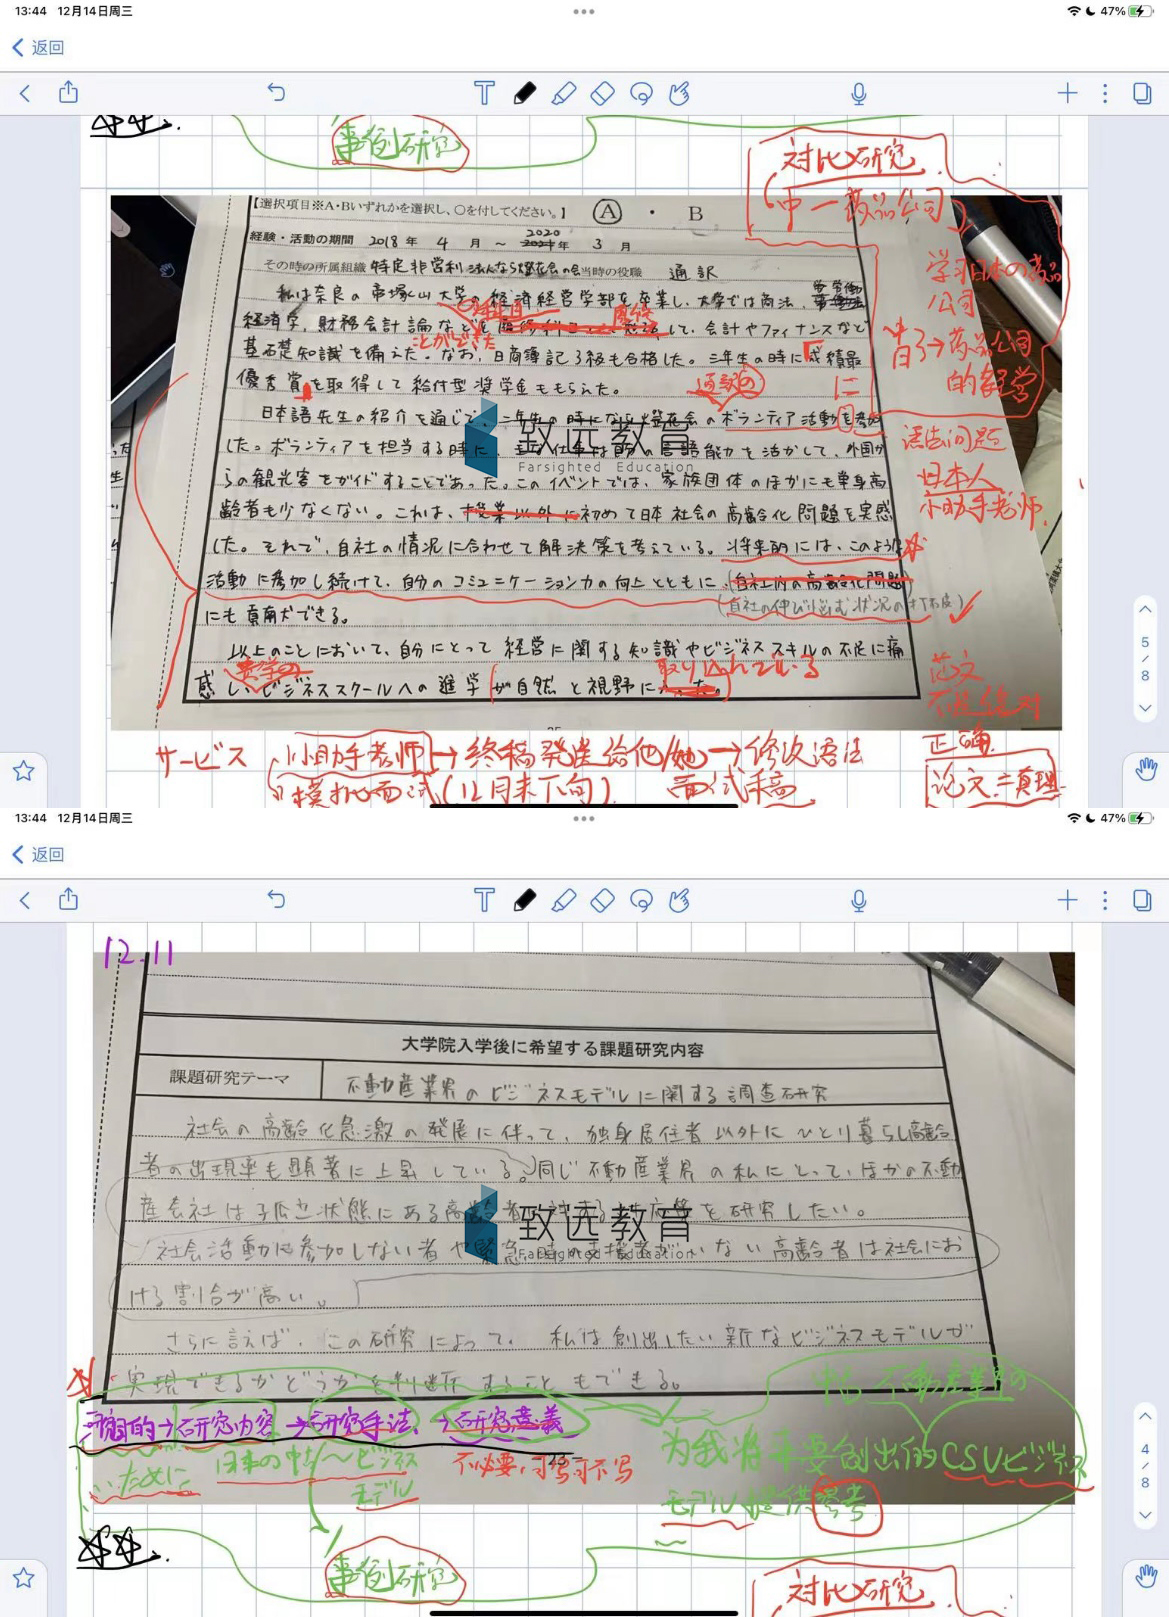 13:44 12月14日周三
47%
返回
事例研究
对比研究
(中一药品公司)
【選択項目※A・Bいずれかを選択し、○を付してください。】 A ・ B
2020
経験・活動の期間 2018年 4 月 ～ 2021年 3 月
その時の所属組織 特定非営利法人なら燈花会の会 当時の役職 通訳
私は奈良の帝塚山大学の経済経営学部を卒業し、大学では商法、
経済学、財務会計論などを して、会計やファイナンスなど
ことができた
基礎知識を備えた。なお、日商簿記3級も合格した。三年生の時に成績最
優秀賞を取得して給付型奨学金ももらえた。
通訳の
に
日本語先生の紹介を通じて、二年生の時になら燈花会のボランティア活動を参加
した。ボランティアを担当する時に、主な仕事は自分の言語能力を活かして、外国か
らの観光客をガイドすることであった。このイベントでは、家族団体のほかにも単身高
齢者も少なくない。これは、授業以外に初めて日本社会の高齢化問題を実感
した。それで、自社の情況に合わせて解決策を考えている。将来的には、このような
活動に参加し続けて、自分のコミュニケーション力の向上とともに、(自社内の高齢化問題
(自社の伸び悩む状況の打破)
にも貢献できる。
以上のことにおいて、自分にとって経営に関する知識やビジネススキルの不足に痛
感し、ビジネススクールへの進学が自然と視野に
取り込れている
学习日本の药品
公司
中日了→药品公司
的経営
语法问题
日本人
小助手老师.
范文
不是绝对
正确.
论文≠真理
致远教育
Farsighted Education
サービス 小助手老师→终稿発送给他/她→修改语法
模拟面试(12月末下旬) 面试手稿
5
/
8
13:44 12月14日周三
47%
返回
12.11
大学院入学後に希望する課題研究内容
課題研究テーマ 不動産業界のビジネスモデルに関する調査研究
社会の高齢化急激の発展に伴って、独身居住者以外にひとり暮らし高齢
者の出現率も顕著に上昇している。同じ不動産業界の私にとって、ほかの不動
産会社は孤立状態にある高齢者に対する対応策を研究したい。
社会活動に参加しない者や緊急時の支援者がいない高齢者は社会にお
ける割合が高い。
さらに言えば、この研究によって、私は創出したい新なビジネスモデルが
実現できるかどうかを判断することもできる。
致远教育
Farsighted Education
目的→研究内容→研究手法→研究意義
いために 日本の中古〜ビジネス
モデル
不必要,可写可不写
中古不動産業界の
为我将来要创出的CSVビジネス
モデル提供参考
23
事例研究
对比研究
4
/
8